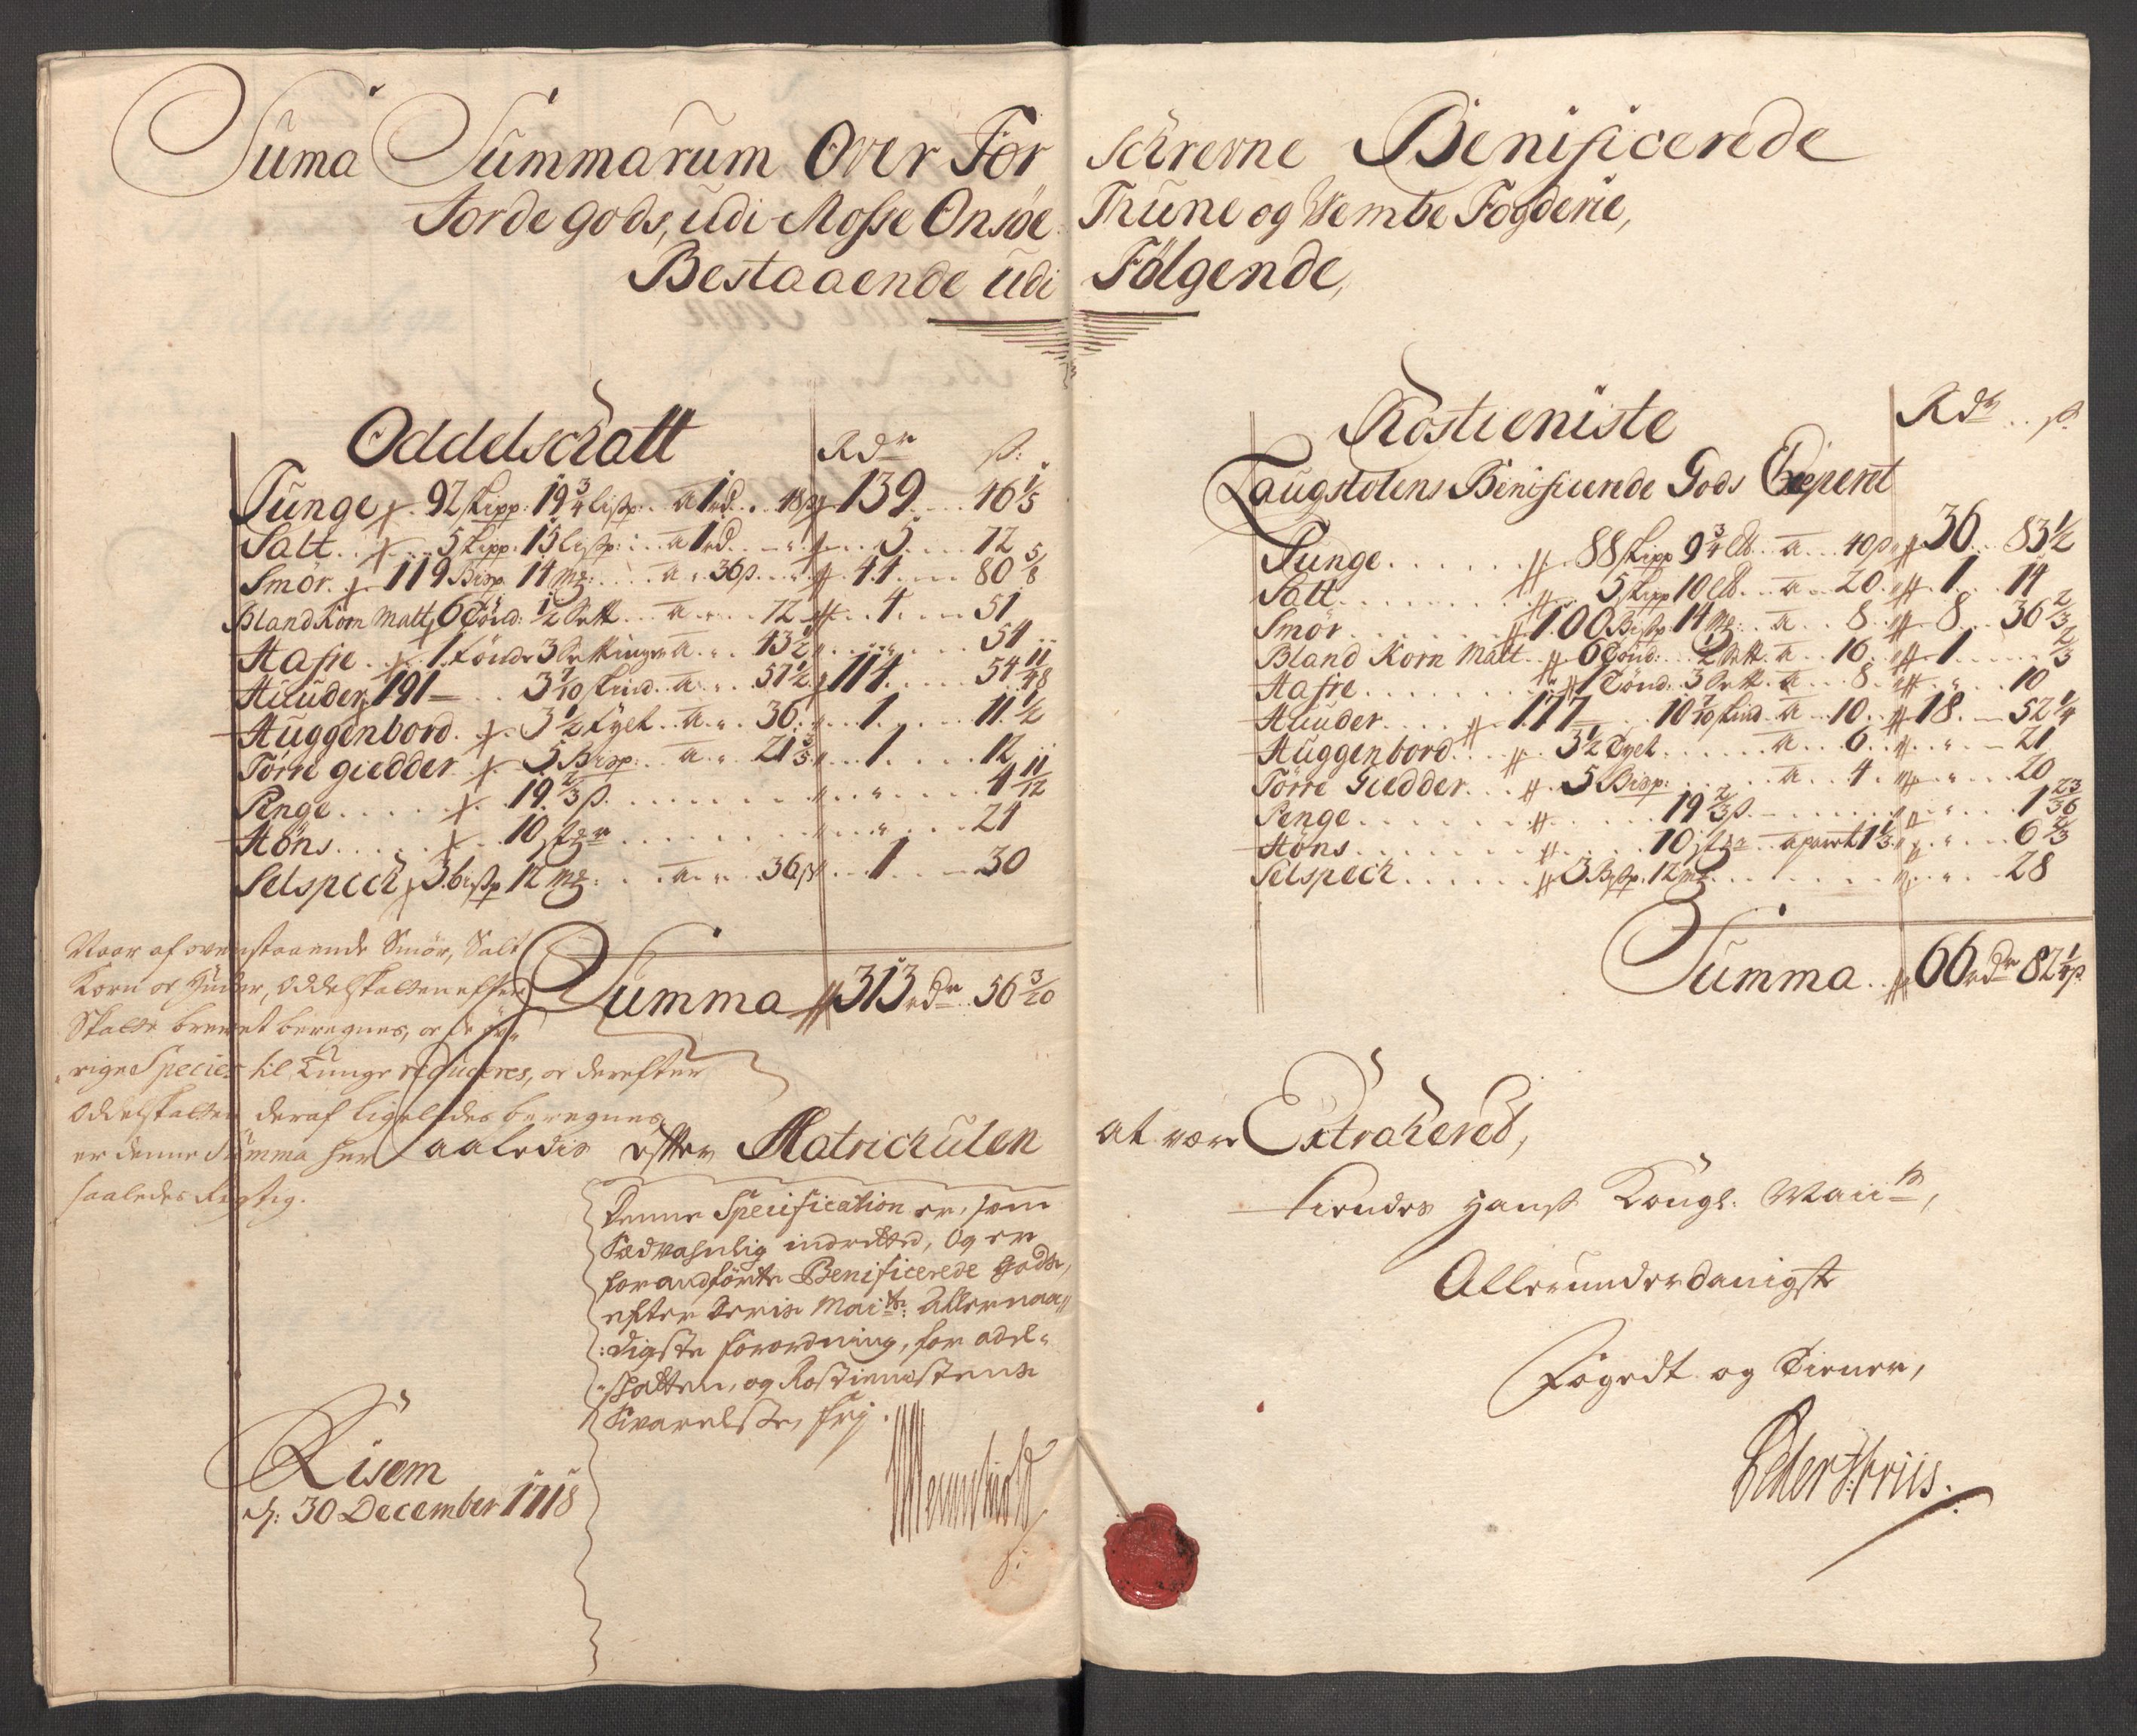 Suma Summarum Over For schrevne Benificerede
Jorde gods, udi Mosse Onsøe Thune og Wembe Fogderie,
Bestaaende udi Følgende,
Oddelschatt
Rdr ß:
Tunge 92 skipp: 19 3/4 lisp: a 1 rd. 48ß 139 46 1/5
Salt 5 skipp: 15 lisp: a 1 rd 5 72
Smör 119 Bisp 14 mk: a 36ß 44 80 5/8
Bland Korn Malt 6 Tönd: 1/2 Sett a 72 4 51
Hafre 1 Tönde 3 Settinger a 43 1/2 54
Huuder 191 3 7/10 skind a 57 1/2 114 54 11/48
Huggenbord 3 1/2 tylt a 36 1 11 1/2
Torre giedder 5 Bisp: a 21 3/5 1 12
Penge 19 2/3 ß 4 11/12
Höns 10 st 21
Selspech 3 bisp 12 mk: a 36ß 1 30
Summa 313 rdr 56 3/20
Naar af ovenstaaende Smör, Salt
Korn og Huder, Oddelskatten efter
Skatte brevet beregnes, og de øv-
rige Species til Tunge reduceres, og derefter
Oddelskatten deraf ligeledes beregnes
er denne Summa her
saaledes Rigtig.
Saaledis efter Matrichulen at være Extraheret,
Denne Specification er, som
Sædvahnlig indretted, og er
foranførte Benificerede Gods,
efter deris Maits: Allernaa-
digste forordning, for odel-
skatten, og Rostienestens
Svarelse, frj.
Risem
d: 30 December 1718
Rostieniste
Rdr ß
Laugstolens Benificerede Gods Exeperet
Tunge 88 skipp 9 3/4 lb a 40ß 36 83 1/2
Salt 5 skipp 10 lb a 20 1 14
Smör 100 Bisp 14 mk: a 8 8 36 2/3
Bland Korn Malt 6 Tönd: 1/2 Sett a 16 1 2/3
Hafre 1 Tönd: 3 Sett a 8 10
Huuder 177 10 7/10 skind a 10 18 52 1/4
Huggenbord 3 1/2 Tylt a 6 21
Törre Giedder 5 Bisp: a 4 20
Penge 19 2/3 ß 1 23/36
Höns 10 st a parret 1 1/3 6 2/3
Selspech 3 Bisp. 12 mk 28
Summa 66 rdr 82 1/4 ß
Hans Kongl: Maiits,
Allerunderdanigste
Fogedt og Tiener,
Peter Friis.